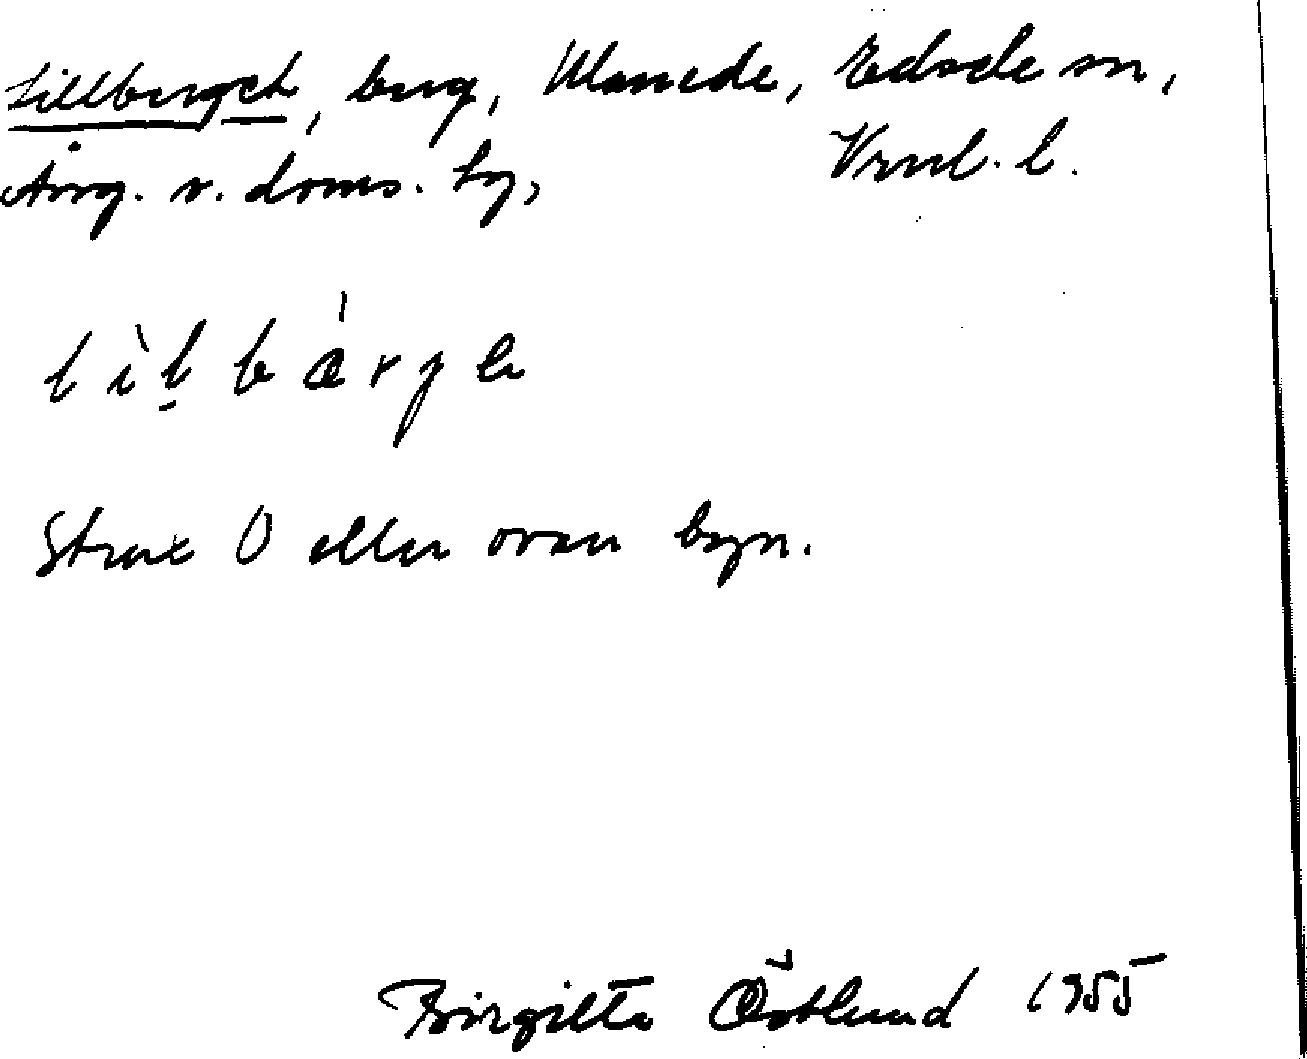 Lillberget, berg, Ulanede, Edsele sn,
Ång. v. doms. fg, Vrnl. l.
l ì l b ä́ r j e
Strax O eller ovan byn.
Birgitta Östlund 1955